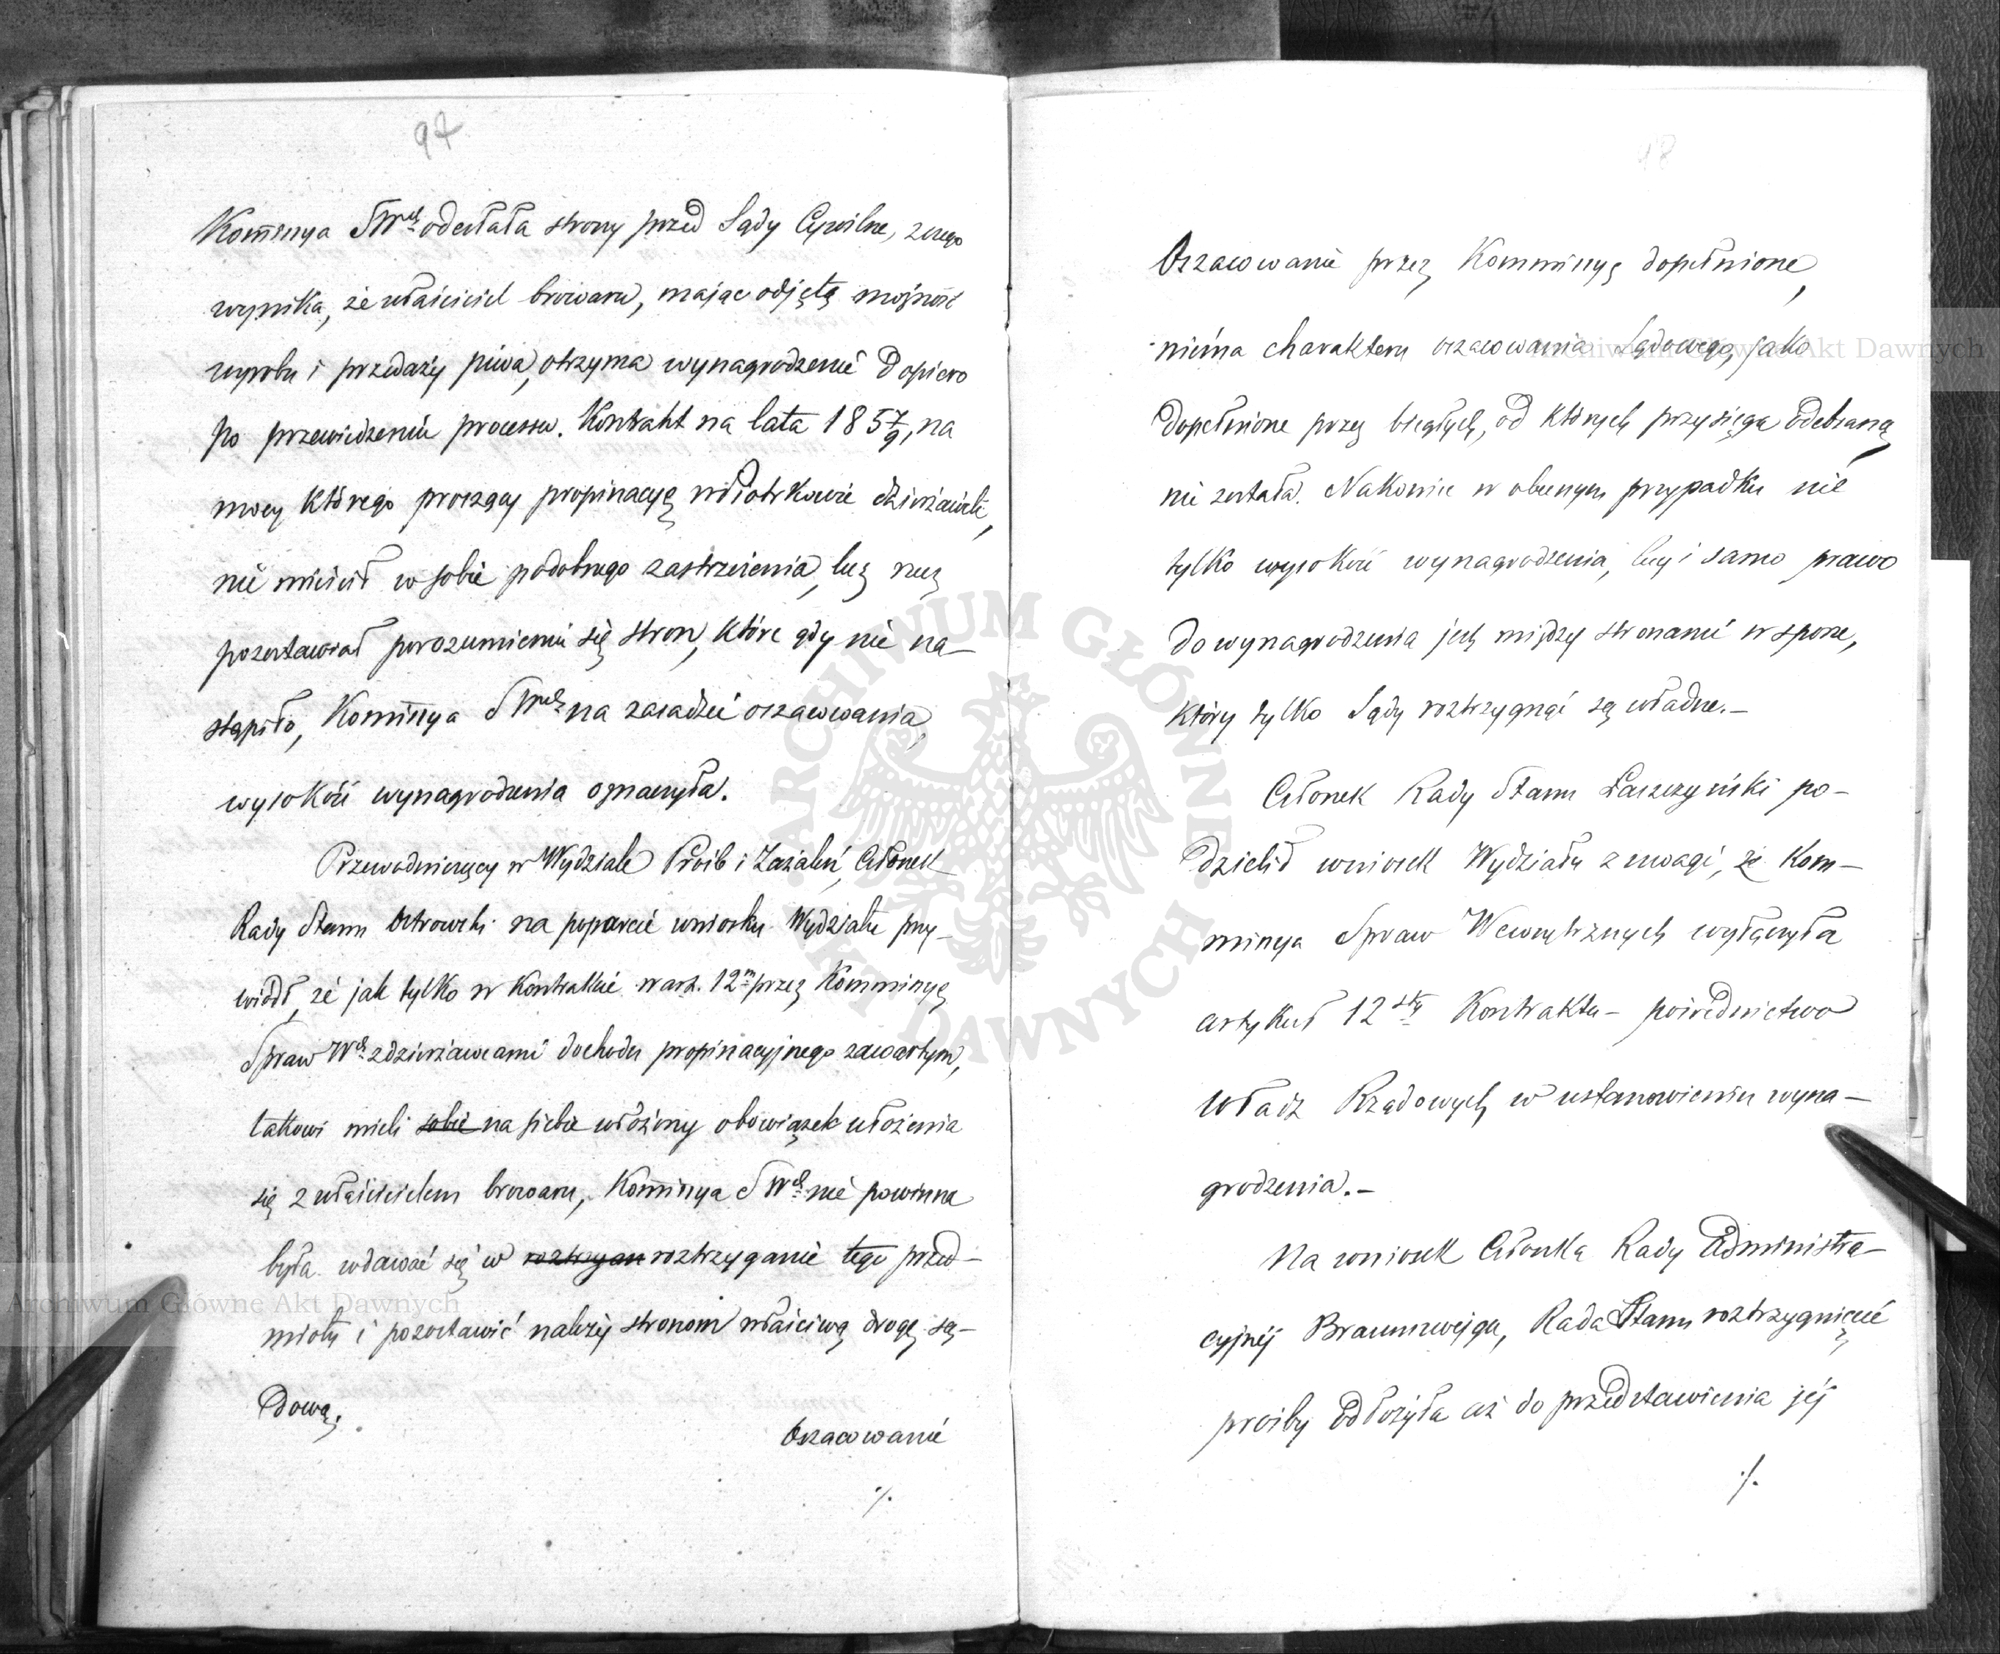 97
Kom̄issya S Wch odesłała strony przed Sądy Cywilne, z czego
wynika, że właściciel browaru, mając odjętą możność
wyrobu i przedaży piwa, otrzyma wynagrodzenie dopiero
po przewiedzeniu processu. Kontrakt na lata 1857/9, na
mocy którego proszący propinacyę w Piotrkowie dzierżawili,
nie mieścił w sobie podobnego zastrzeżenia, lecz rzecz
pozostawiał porozumieniu się stron, które gdy nie na-
stąpiło, Kom̄issya S Wch na zasadzie oszacowania,
wysokość wynagrodzenia oznaczyła.
Przewodniczący w Wydziale Próśb i Zażaleń, Członek
Rady Stanu Ostrowski na poparcie wniosku Wydziału przy-
wiódł, że jak tylko w Kontrakcie w art. 12m przez Kommissyę
Spraw Wch z dzierżawcami dochodu propinacyjnego zawartym,
takowi mieli sobie na siebie włożony obowiązek ułożenia
się z właścicielem browaru, Kom̄issya S Wch nie powinna
była wdawać się w roztrzygan roztrzyganie tego przed-
miotu i pozostawić należy stronom właściwą drogę są-
dową.
Oszacowanie
./.
98
Oszacowanie przez Kommissyę dopełnione,
niema charakteru oszacowania Sądowego, jako
dopełnione przez biegłych, od których przysięga odebraną
nie została. Nakoniec w obecnym przypadku nie
tylko wysokość wynagrodzenia, lecz i samo prawo
do wynagrodzenia jest między stronami w sporze,
który tylko Sądy roztrzygnąć są władne.-
Członek Rady Stanu Łaszczyński po-
dzielił wniosek Wydziału z uwagi, że Kom-
missya Spraw Wewnętrznych wyłączyła
artykuł 12sty Kontraktu - pośrednictwo
Władz Rządowych w ustanowieniu wyna-
grodzenia.-
Na wniosek Członka Rady Administra-
cyjnéj Braunszwejga, Rada Stanu roztrzygnięcie
prośby odłożyła aż do przedstawienia jéj
./.
ARCHIWUM GŁÓWNE AKT DAWNYCH
Archiwum Główne Akt Dawnych
Archiwum Główne Akt Dawnych